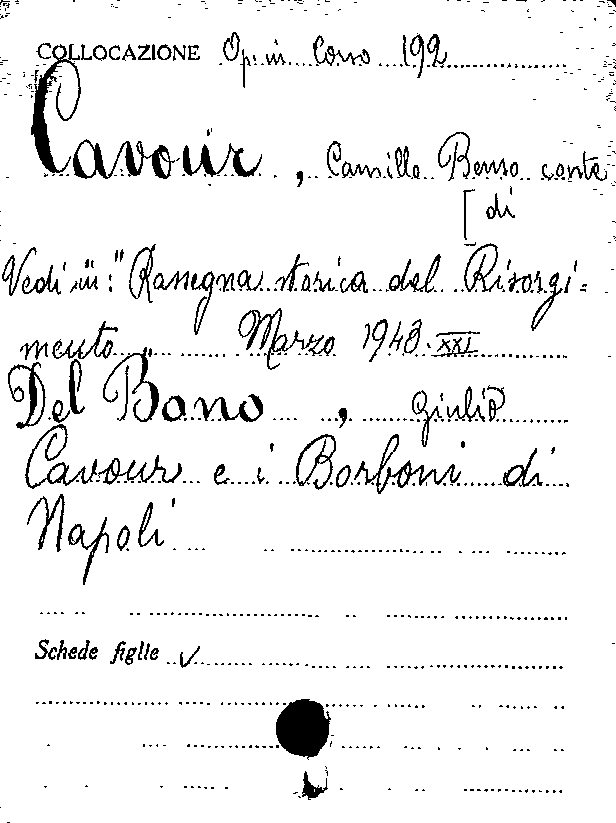 COLLOCAZIONE Op. in Corso 192
Cavour, Camillo Benso conte
[di
Vedi in: "Rassegna storica del Risorgi=
mento" Marzo 1943. XXI
Del Bono, Giulio
Cavour e i Borboni di
Napoli
Schede figlie ✓